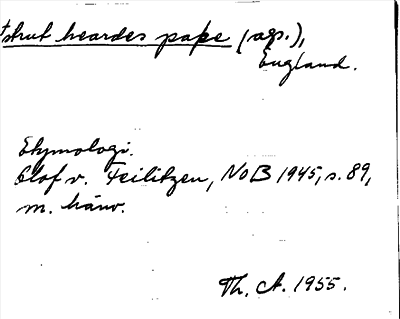 †strut heardes paþe (ags.),
England.
Etymologi.
Olof v. Feilitzen, NoB 1945, s. 89,
m. hänv.
Th. A. 1955.